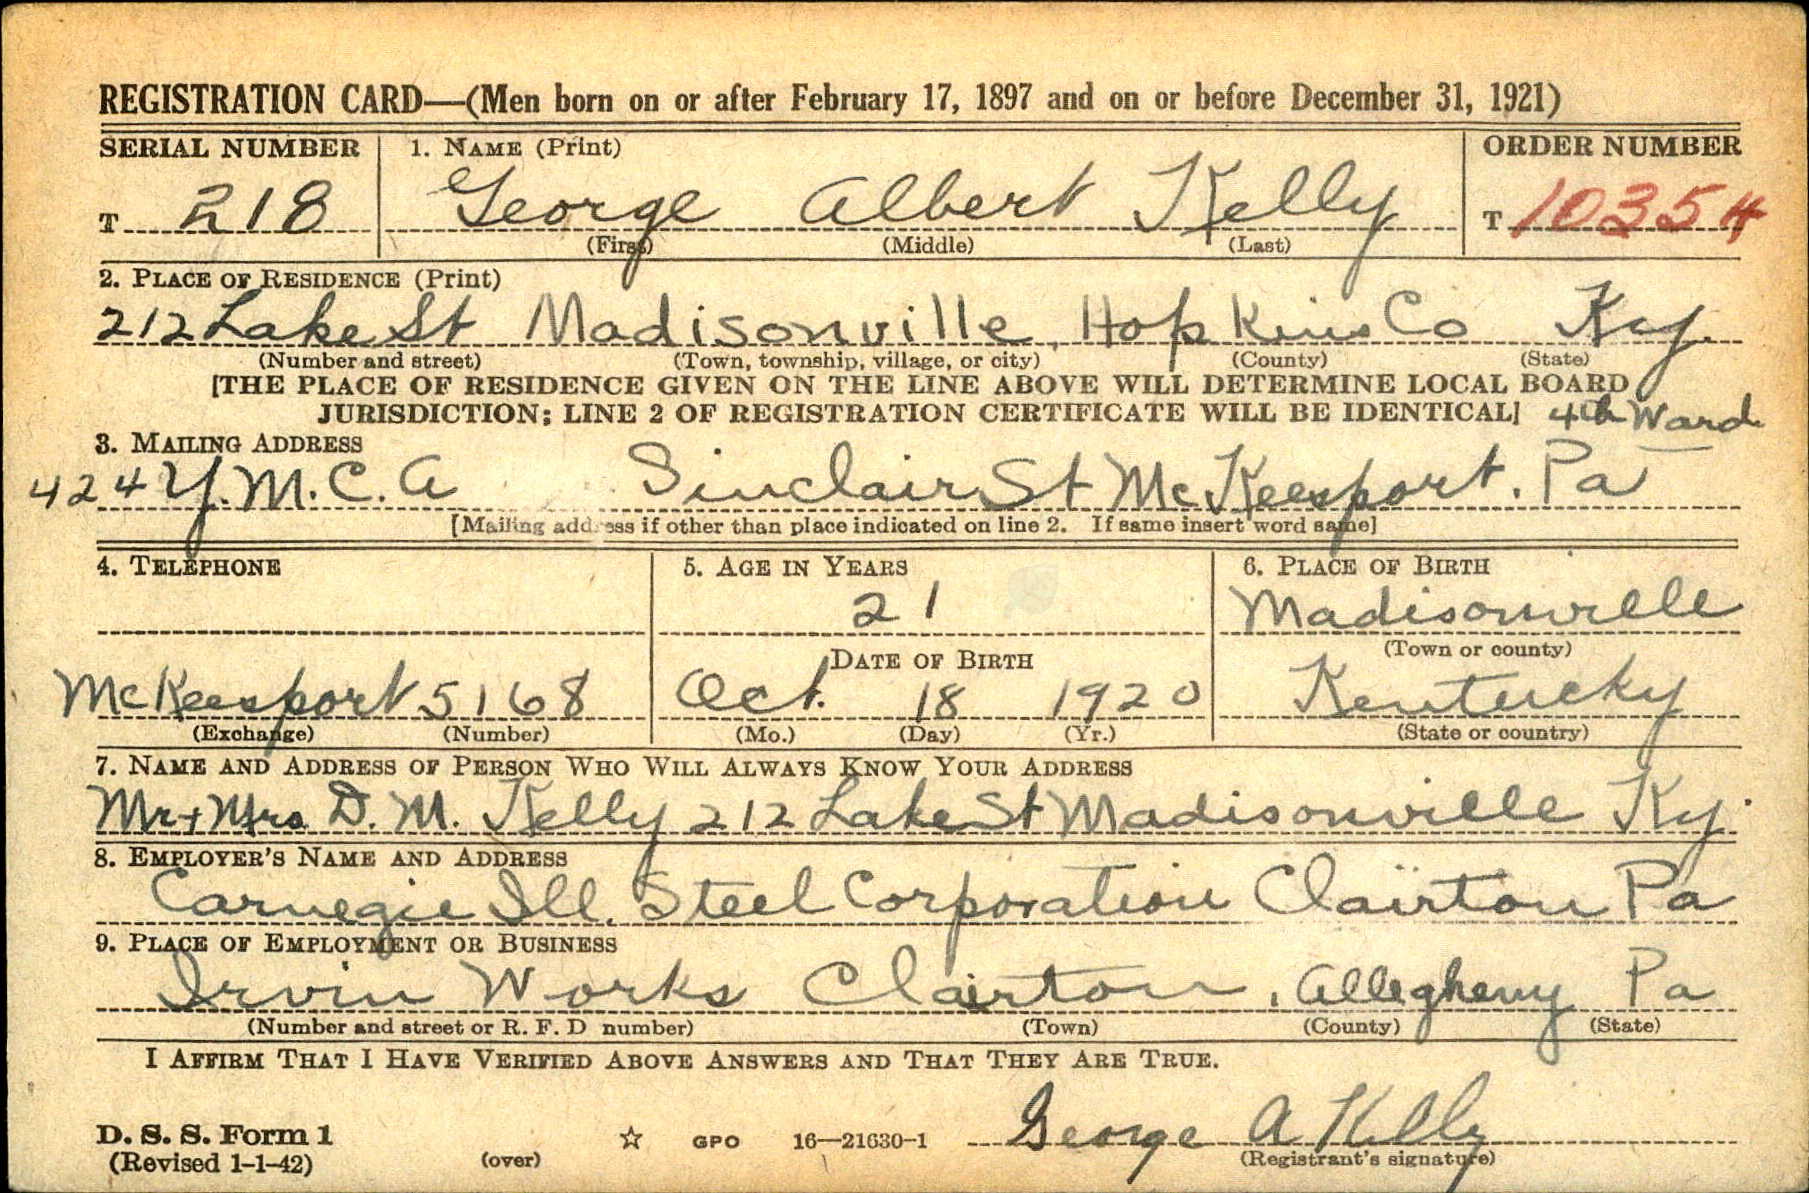 REGISTRATION CARD—(Men born on or after February 17, 1897 and on or before December 31, 1921)
SERIAL NUMBER 1. NAME (Print) ORDER NUMBER
T 218 George Albert Kelly T 10354
(First) (Middle) (Last)
2. PLACE OF RESIDENCE (Print)
212 Lake St Madisonville, Hopkins Co Ky.
(Number and street) (Town, township, village, or city) (County) (State)
[THE PLACE OF RESIDENCE GIVEN ON THE LINE ABOVE WILL DETERMINE LOCAL BOARD
JURISDICTION; LINE 2 OF REGISTRATION CERTIFICATE WILL BE IDENTICAL] 4th Ward
3. MAILING ADDRESS
424 Y.M.C.A Sinclair St McKeesport. Pa
[Mailing address if other than place indicated on line 2. If same insert word same]
4. TELEPHONE 5. AGE IN YEARS 6. PLACE OF BIRTH
21 Madisonville
DATE OF BIRTH (Town or county)
McKeesport 5168 Oct. 18 1920 Kentucky
(Exchange) (Number) (Mo.) (Day) (Yr.) (State or country)
7. NAME AND ADDRESS OF PERSON WHO WILL ALWAYS KNOW YOUR ADDRESS
Mr + Mrs D. M. Kelly 212 Lake St Madisonville Ky.
8. EMPLOYER'S NAME AND ADDRESS
Carnegie Ill. Steel Corporation Clairton Pa
9. PLACE OF EMPLOYMENT OR BUSINESS
Irvin Works Clairton, Allegheny Pa
(Number and street or R. F. D number) (Town) (County) (State)
I AFFIRM THAT I HAVE VERIFIED ABOVE ANSWERS AND THAT THEY ARE TRUE.
George A Kelly
D. S. S. Form 1 GPO 16—21630-1
(Revised 1-1-42) (over) (Registrant's signature)